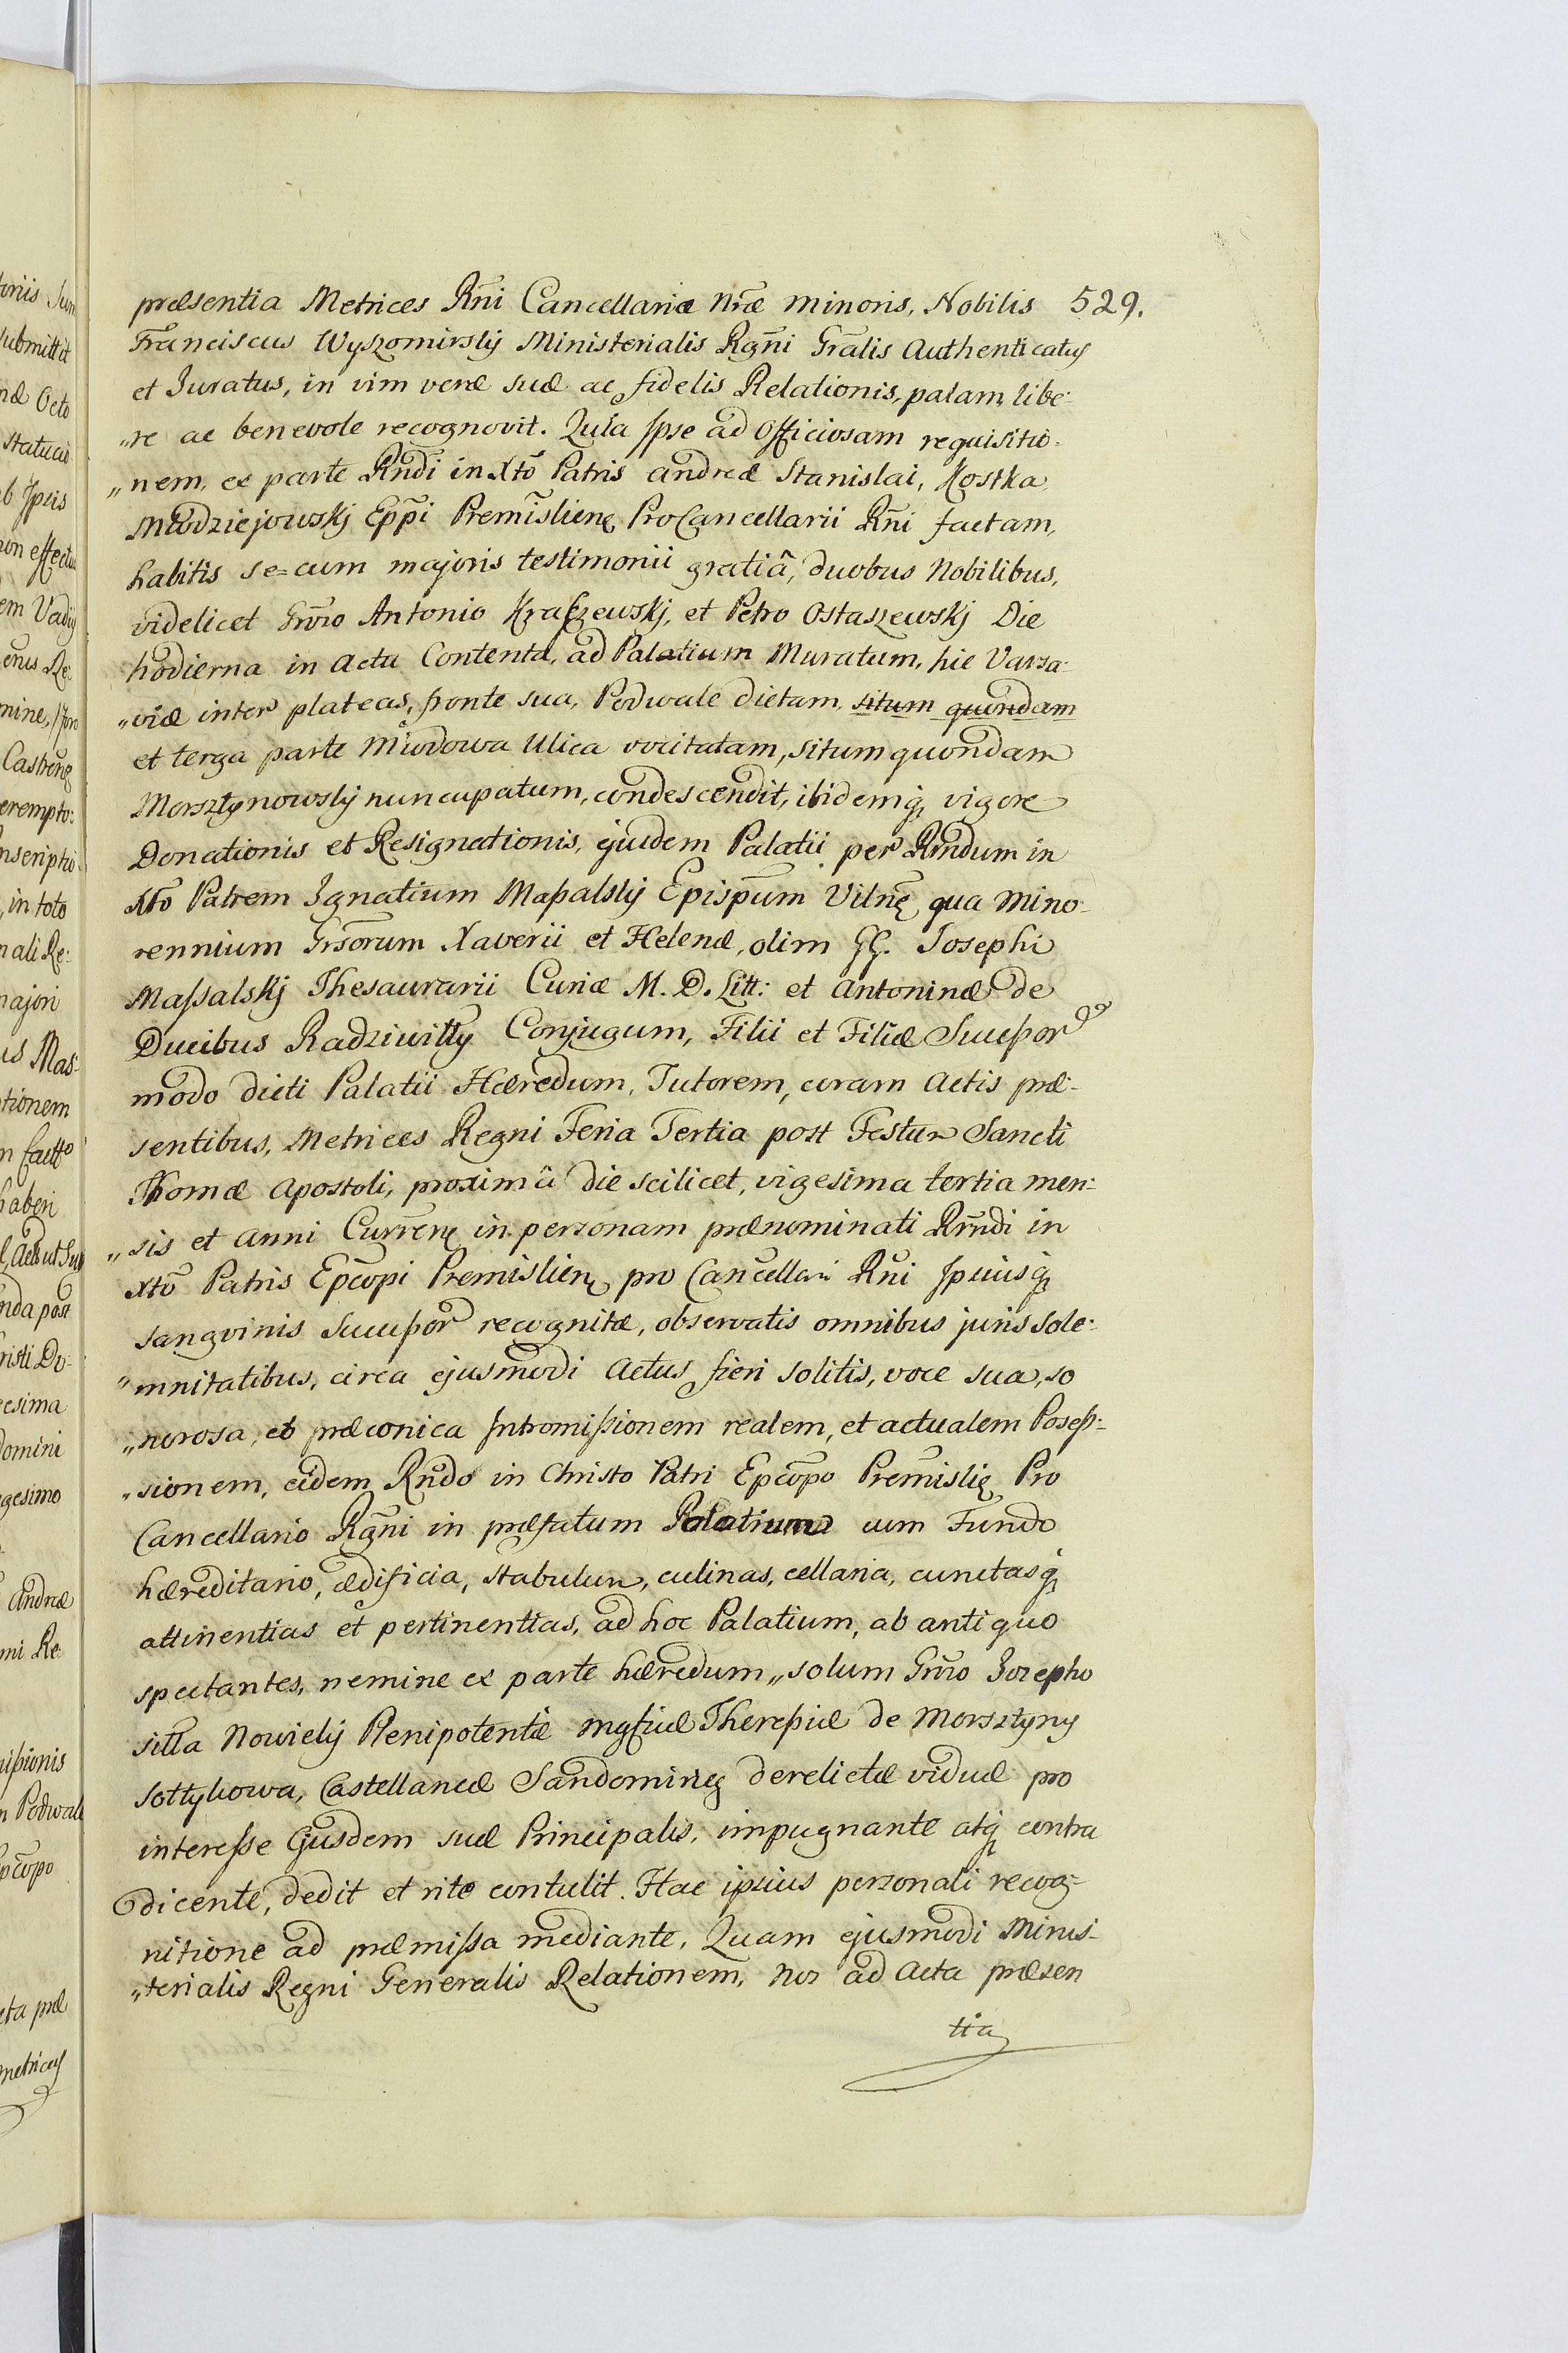 529.
præsentia Metrices Rñi Cancellariæ Nræ minoris, Nobilis
Franciscus Wyszomirsky Ministerialis Rgñi Gralis Authenticatus
et Juratus, in vim veræ suæ ac fidelis Relationis, palam, libe-
„re ac benevole recognovit. Quia Ipse ad Officiosam requisitio-
„nem, ex parte Rñdi in Xto Patris Andreæ Stanislai, Kostka
Młodziejowskj Eppi Premislieñ ProCancellarii Rñi factam,
habitis se=cum majoris testimonii gratiâ, duobus Nobilibus,
videlicet Gnro Antonio Kraszewskj, et Petro Ostaszewskj Die
hodierna in Actu Contenta, ad Palatium Muratum, hic Varsa-
„viæ inter plateas, fronte sua, Podwale dictam, situm quondam
et terga parte Miodowa Ulica vocitatam, situm quondam
Morsztynowsky nuncupatum, condescendit, ibidemq vigore
Donationis et Resignationis, ejusdem Palatii per Rmdum in
Xto Patrem Ignatium Maßalsky Epispum Vilnę qua mino-
rennium Grsorum Xaverii et Helenæ, olim GG. Josephi
Maßalskj Thesaurarii Curiæ M. D. Litt: et Antoninæ de
Ducibus Radziwiłły Conjugum, Filii et Filiæ Succeßor
modo dicti Palatii Hæredum, Tutorem, coram Actis præ-
sentibus, Metrices Regni Feria Tertia post Festum Sancti
Thomæ Apostoli, proximâ die scilicet, vigesima tertia men-
„sis et Anni Currenę in personam prænominati Rmdi in
Xto Patris Epcopi Premislienę pro Cancellari Rñi Ipsiusq
sangvinis Succeßor recognitæ, observatis omnibus juris sole-
„mnitatibus, circa ejusmodi Actus fieri solitis, voce sua, so
„norosa, et præconica Intromißionem realem, et actualem Poseß-
„sionem, eidem Rñdo in Christo Patri Epcopo Premislię Pro
Cancellario Rgñi in præfatum Palatium cum Fundo
hæreditario, ædificia, stabulum, culinas, cellaria, cunctasq
attinentias et pertinentias, ad hoc Palatium, ab antiquo
spectantes, nemine ex parte hæredum „ solum Gnro Josepho
Nowiely Plenipotentiæ Mgficæ Thereßiæ de Morsztyny
Sołtykowa, Castellaneæ Sandomirieę derelictæ viduæ pro
intereße Ejusdem suæ Principalis, impugnante atq contra
dicente, dedit et rite contulit. Hac ipsius personali recog-
nitione ad præmißa mediante, Quam ejusmodi Minis-
„terialis Regni Generalis Relationem, Nos ad Acta præsen
tia